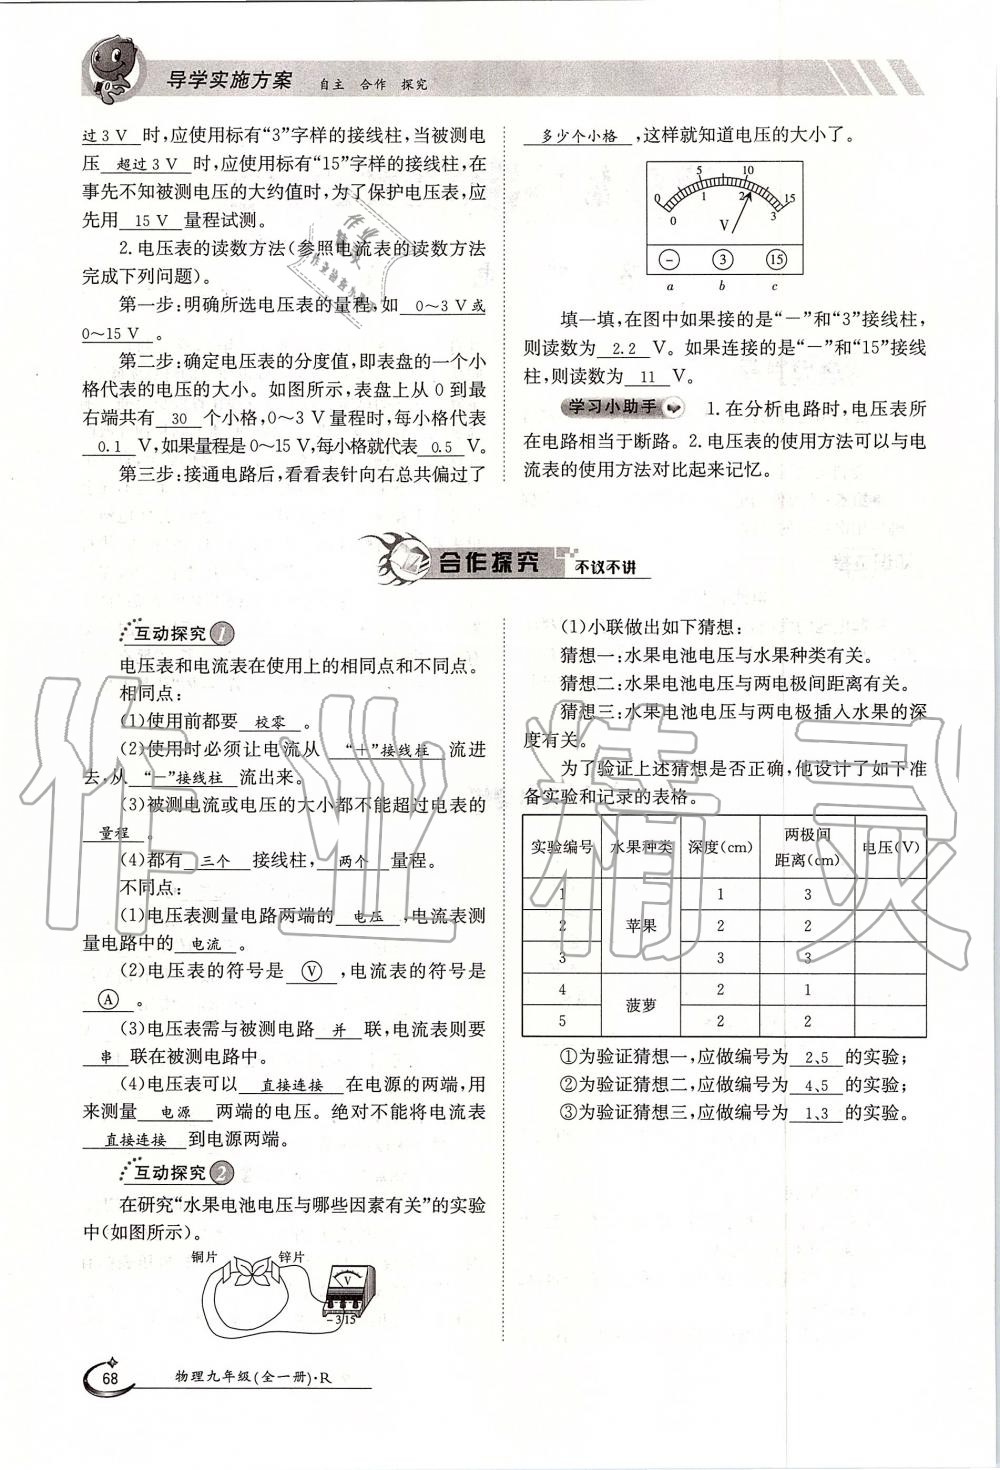 导学实施方案 自主 合作 探究
过3 V 时,应使用标有“3”字样的接线柱,当被测电
压 超过3 V 时,应使用标有“15”字样的接线柱,在
事先不知被测电压的大约值时,为了保护电压表,应
先用 15 V 量程试测。
2. 电压表的读数方法(参照电流表的读数方法
完成下列问题)。
第一步:明确所选电压表的量程,如 0～3 V或
0～15 V 。
第二步:确定电压表的分度值,即表盘的一个小
格代表的电压的大小。如图所示,表盘上从0到最
右端共有 30 个小格,0～3 V量程时,每小格代表
0.1 V,如果量程是0～15 V,每小格就代表 0.5 V。
第三步:接通电路后,看看表针向右总共偏过了
多少个小格 ,这样就知道电压的大小了。
0 5 10 15
0 1 2 3
V
－ 3 15
a b c
填一填,在图中如果接的是“－”和“3”接线柱,
则读数为 2.2 V。如果连接的是“－”和“15”接线
柱,则读数为 11 V。
学习小助手 1. 在分析电路时,电压表所
在电路相当于断路。2. 电压表的使用方法可以与电
流表的使用方法对比起来记忆。
合作探究 不议不讲
互动探究 1
电压表和电流表在使用上的相同点和不同点。
相同点:
(1)使用前都要 校零 。
(2)使用时必须让电流从 “＋”接线柱 流进
去,从 “－”接线柱 流出来。
(3)被测电流或电压的大小都不能超过电表的
量程 。
(4)都有 三个 接线柱, 两个 量程。
不同点:
(1)电压表测量电路两端的 电压 ,电流表测
量电路中的 电流 。
(2)电压表的符号是 Ⓥ ,电流表的符号是
Ⓐ 。
(3)电压表需与被测电路 并 联,电流表则要
串 联在被测电路中。
(4)电压表可以 直接连接 在电源的两端,用
来测量 电源 两端的电压。绝对不能将电流表
直接连接 到电源两端。
互动探究 2
在研究“水果电池电压与哪些因素有关”的实验
中(如图所示)。
铜片 锌片
V
－ 3 15
(1)小联做出如下猜想:
猜想一:水果电池电压与水果种类有关。
猜想二:水果电池电压与两电极间距离有关。
猜想三:水果电池电压与两电极插入水果的深
度有关。
为了验证上述猜想是否正确,他设计了如下准
备实验和记录的表格。
实验编号 水果种类 深度(cm) 两极间距离(cm) 电压(V)
1 苹果 1 3
2 2 2
3 3 3
4 菠萝 2 1
5 2 2
①为验证猜想一,应做编号为 2、5 的实验;
②为验证猜想二,应做编号为 4、5 的实验;
③为验证猜想三,应做编号为 1、3 的实验。
68 物理九年级(全一册)·R
作业精灵